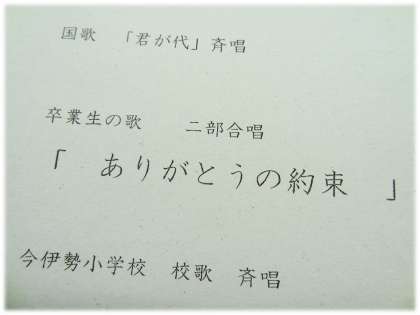 国歌　「君が代」斉唱
卒業生の歌　　二部合唱
「　ありがとうの約束　」
今伊勢小学校　校歌　斉唱